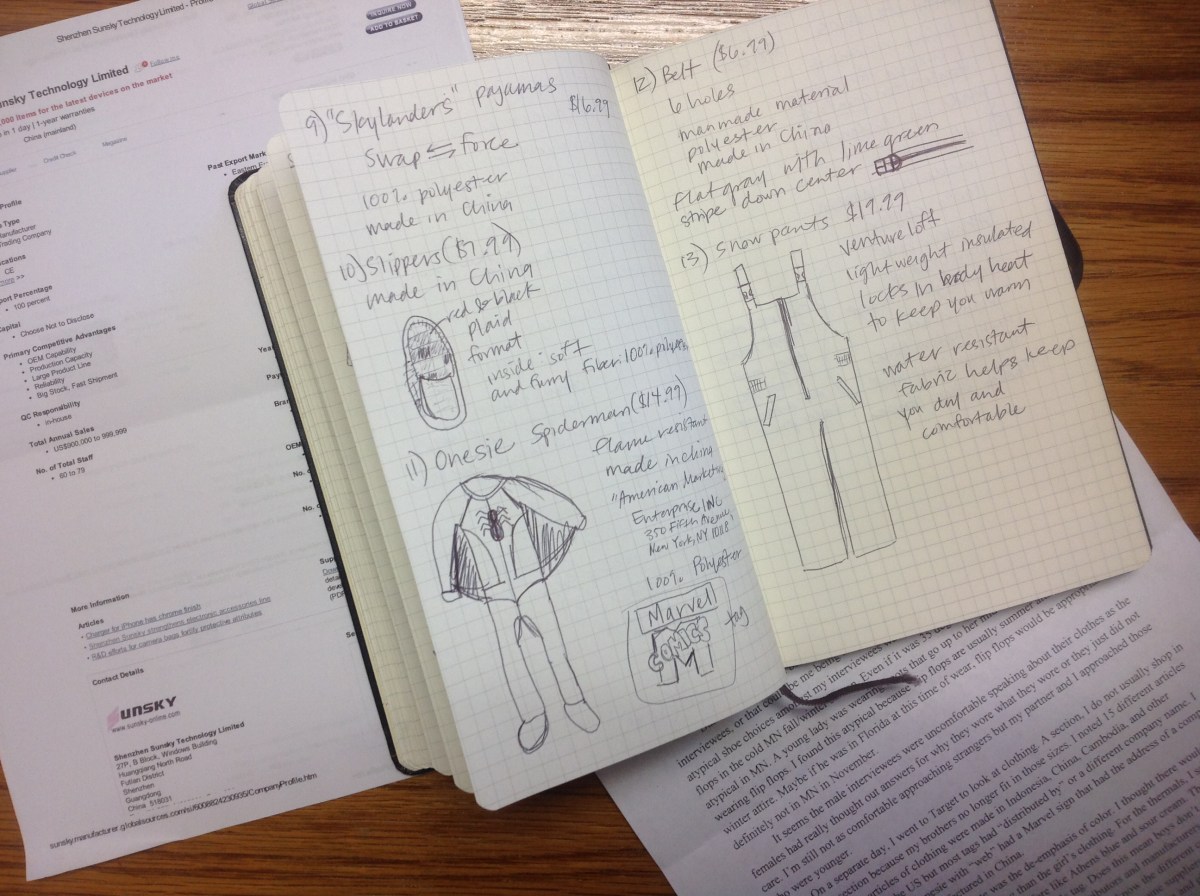 Shenzhen Sunsky Technology Limited - Profile
INQUIRE NOW
ADD TO BASKET
Technology Limited
Follow me
,000 items for the latest devices on the market
in 1 day | 1-year warranties
China (mainland)
Credit Check
Magazine
Past Export Mark
• Eastern
Profile
Type
Manufacturer
Trading Company
CE
Percentage
• 100 percent
Capital
• Choose Not to Disclose
Primary Competitive Advantages
• OEM Capability
• Production Capacity
• Large Product Line
• Reliability
• Big Stock, Fast Shipment
QC Responsibility
• In-house
Total Annual Sales
• US$500,000 to 999,999
No. of Total Staff
• 60 to 79
OEM
No.
More Information
Articles
• Charger for iPhone has chrome finish
• Shenzhen Sunsky strengthens electronic accessories line
• R&D efforts for camera bags fortify protective attributes
Contact Details
SUNSKY
www.sunsky-online.com
Shenzhen Sunsky Technology Limited
27P, B Block, Windows Building
Huaqiang North Road
Futian District
Shenzhen
Guangdong
China 518031
9) "Skylanders" pajamas
$16.99
swap ⇆ force
100% polyester
made in China
10) Slippers ($7.99)
made in China
red & black
plaid
format
inside soft
and furry fiber: 100% polyester
11) Onesie Spiderman ($14.99)
flame resistant
made in china
"American Marketing
Enterprise, INC
350 Fifth Avenue,
New York, NY 10118"
100% Polyester
Marvel
COMICS
tag
12) Belt ($6.99)
6 holes
manmade material
polyester
made in China
flat gray with lime green
stripe down center
13) Snow pants $19.99
venture loft
lightweight insulated
locks in body heat
to keep you warm
water resistant
fabric helps keep
you dry and
comfortable
interviewees, or that could be me being
atypical shoe choices amongst my interviewees
flops in the cold MN fall/winter
Even if it was 35
atypical in MN. A young lady was wearing
that go up to her
wearing flip flops. I found this atypical because flip flops are usually summer
winter attire. Maybe if he was in Florida at this time of wear, flip flops would be appropriate
definitely not in MN in November.
It seems the male interviewees were uncomfortable speaking about their clothes as the
females had really thought out answers for why they wore what they wore or they just did not
care. I'm still not as comfortable approaching strangers but my partner and I approached those
who were younger.
On a separate day, I went to Target to look at clothing. A section, I do not usually shop in
section because my brothers no longer fit in those sizes. I noted 15 different articles
articles of clothing were made in Indonesia, China, Cambodia, and other
US but most tags had "distributed by" or a different company name.
with "web" had a Marvel sign that had the address of a
in China.
was the de-emphasis of color. I thought there
than the girl's clothing. For the thermals,
like Athens blue and sour cream.
Does this mean boys don't